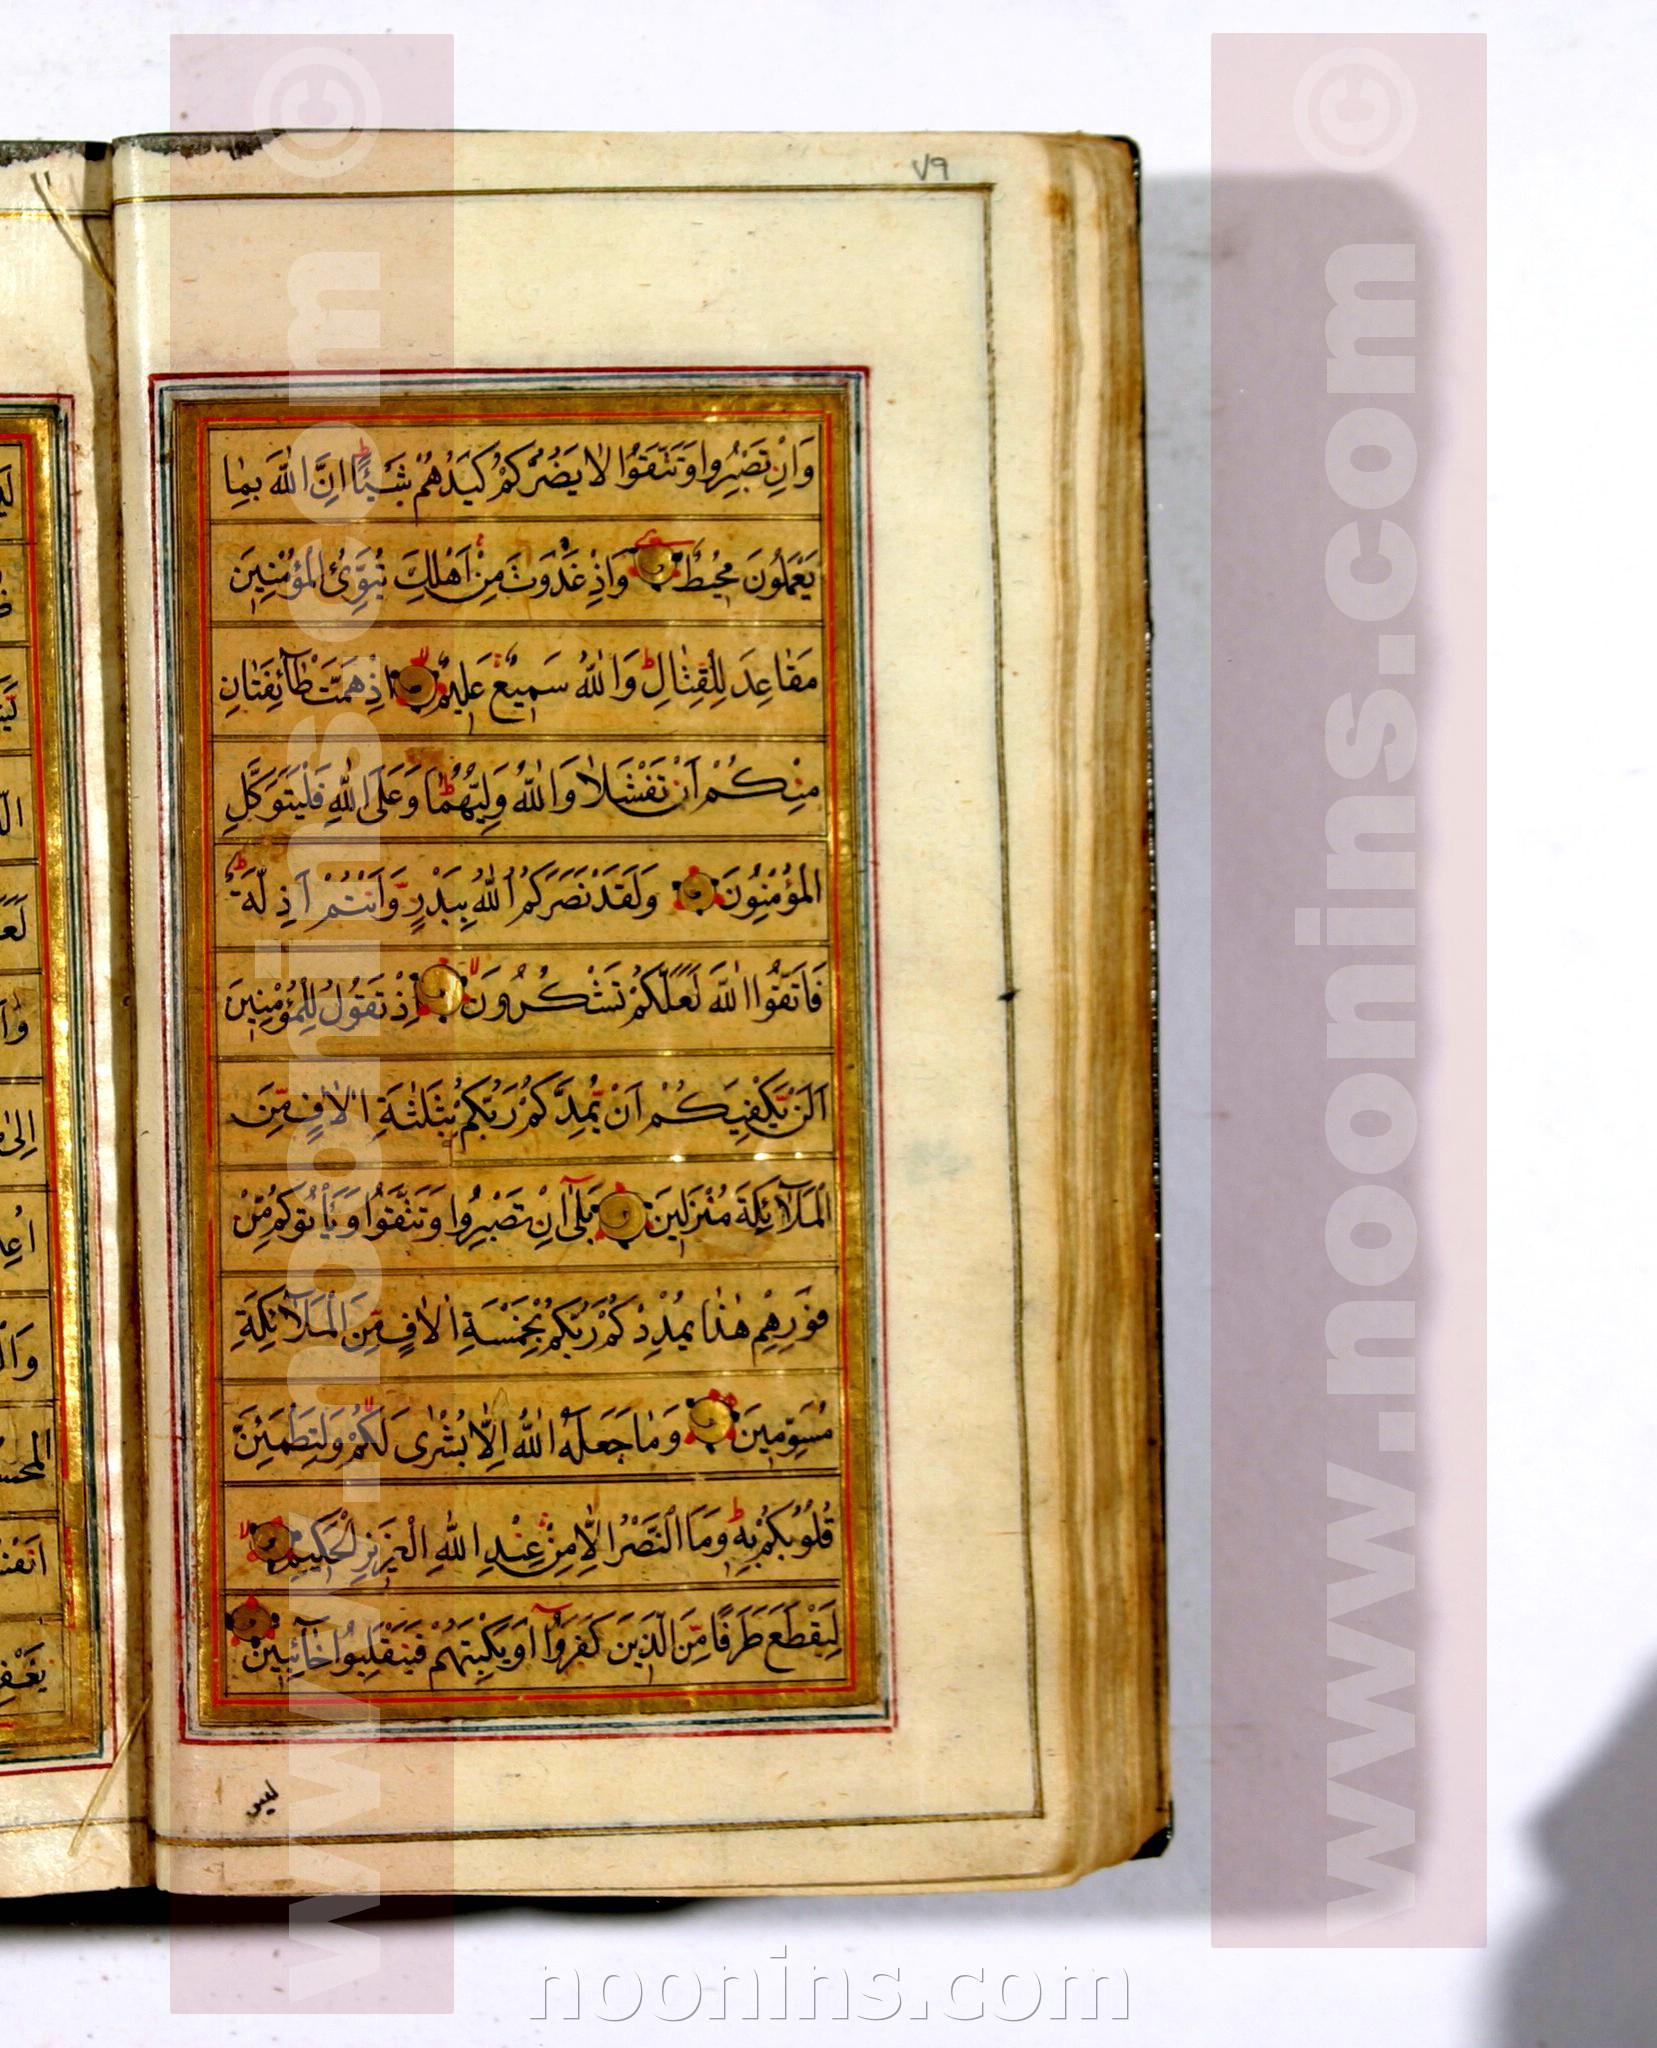 ٧٩
وَاِنْ تَصْبِرُوا وَتَتَّقُوا لَا يَضُرُّكُمْ كَيْدُهُمْ شَيْئًا ط اِنَّ اللّٰهَ بِمَا
يَعْمَلُونَ مُحِيطٌ وَاِذْ غَدَوْتَ مِنْ اَهْلِكَ تُبَوِّئُ الْمُؤْمِنِينَ
مَقَاعِدَ لِلْقِتَالِ ط وَاللّٰهُ سَمِيعٌ عَلِيمٌ لا اِذْ هَمَّتْ طَآئِفَتَانِ
مِنْكُمْ اَنْ تَفْشَلَا وَاللّٰهُ وَلِيُّهُمَا ط وَعَلَى اللّٰهِ فَلْيَتَوَكَّلِ
الْمُؤْمِنُونَ وَلَقَدْ نَصَرَكُمُ اللّٰهُ بِبَدْرٍ وَّاَنْتُمْ اَذِلَّةٌ ط
فَاتَّقُوا اللّٰهَ لَعَلَّكُمْ تَشْكُرُونَ لا اِذْ تَقُولُ لِلْمُؤْمِنِينَ
اَلَنْ يَّكْفِيَكُمْ اَنْ يُّمِدَّكُمْ رَبُّكُمْ بِثَلٰثَةِ اٰلَافٍ مِّنَ
الْمَلَآئِكَةِ مُنْزَلِينَ بَلٰىٓ اِنْ تَصْبِرُوا وَتَتَّقُوا وَيَأْتُوكُمْ مِّنْ
فَوْرِهِمْ هٰذَا يُمْدِدْكُمْ رَبُّكُمْ بِخَمْسَةِ اٰلَافٍ مِّنَ الْمَلَآئِكَةِ
مُسَوِّمِينَ وَمَا جَعَلَهُ اللّٰهُ اِلَّا بُشْرٰى لَكُمْ وَلِتَطْمَئِنَّ
قُلُوبُكُمْ بِهٖ ط وَمَا النَّصْرُ اِلَّا مِنْ عِنْدِ اللّٰهِ الْعَزِيزِ الْحَكِيمِ لا
لِيَقْطَعَ طَرَفًا مِّنَ الَّذِينَ كَفَرُوٓا اَوْ يَكْبِتَهُمْ فَيَنْقَلِبُوا خَآئِبِينَ
ليس
www.noonins.com ©
www.noonins.com ©
noonins.com